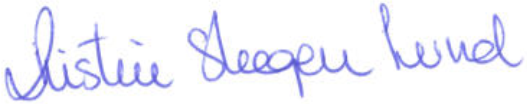 Kristin Skogen Lund